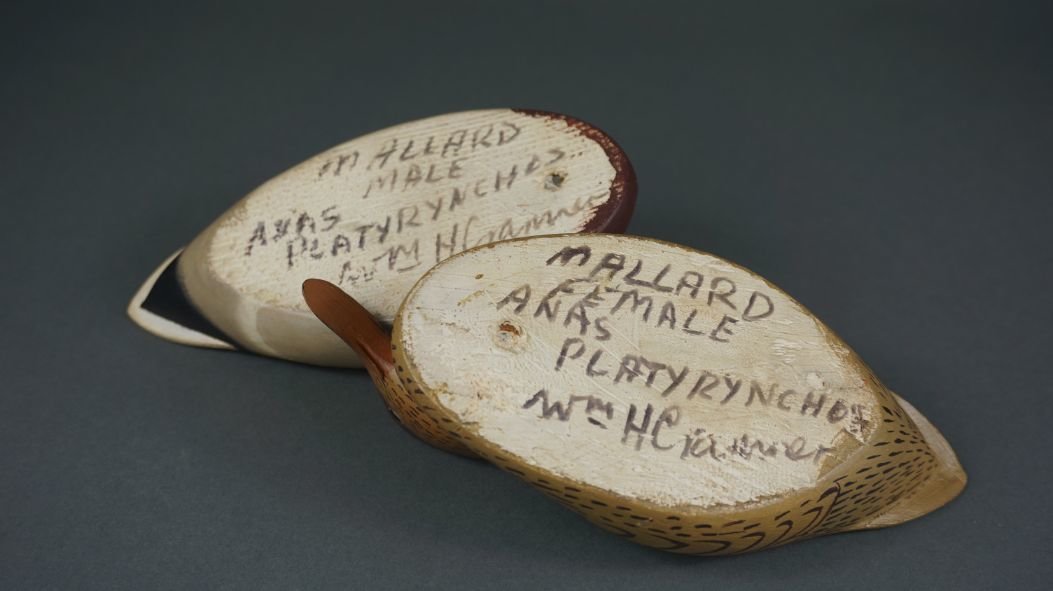 MALLARD
MALE
ANAS
PLATYRYNCHOS
Wm H Cranmer
MALLARD
FEMALE
ANAS
PLATYRYNCHOS
Wm H Cranmer